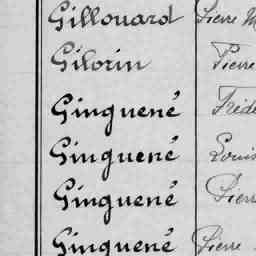 Gillouard Pierre M
Gilorin Pierre
Ginguené Frédé
Ginguené Louis
Ginguené Pierr
Ginguené Pierre